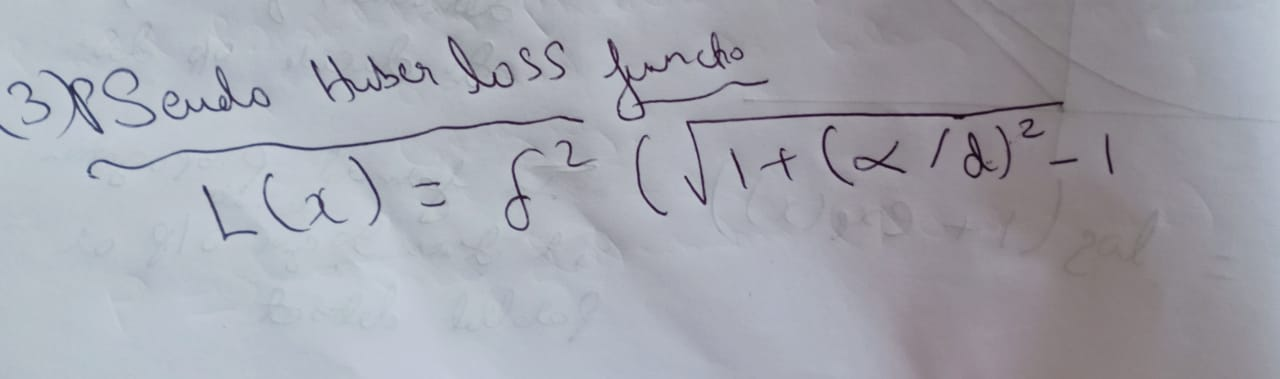 (3) PSeudo Huber loss functio
L(x) = f² (√1+(α/d)² - 1